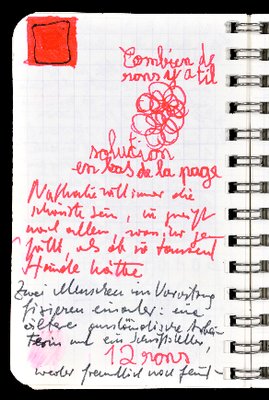 Combien de
rons y a til
solution
en bas de la page
Nathalie will immer die
schönste sein, sie greift
nach allem, was ihr ge-
fällt, als ob sie tausend
Hände hätte
Zwei Menschen im Vorortzug
fixieren einander: eine
ältere ausländische Arbei-
terin und ein Schriftsteller,
12 rons
weder freundlich noch feind-